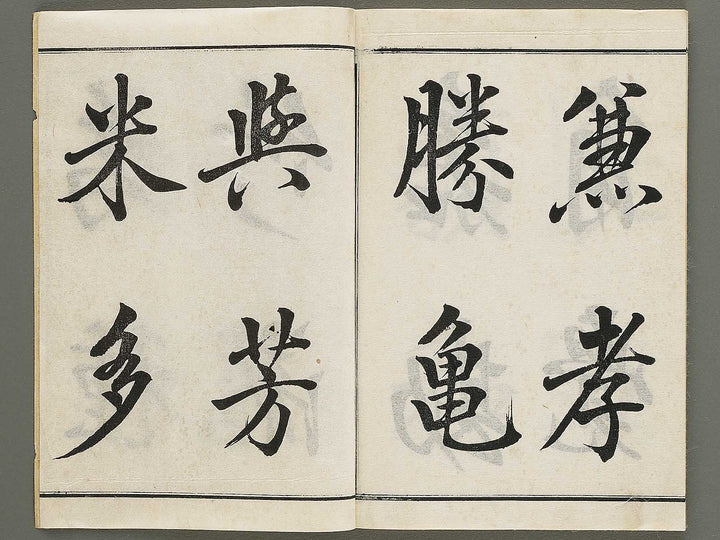 兼孝
勝亀
與芳
米多